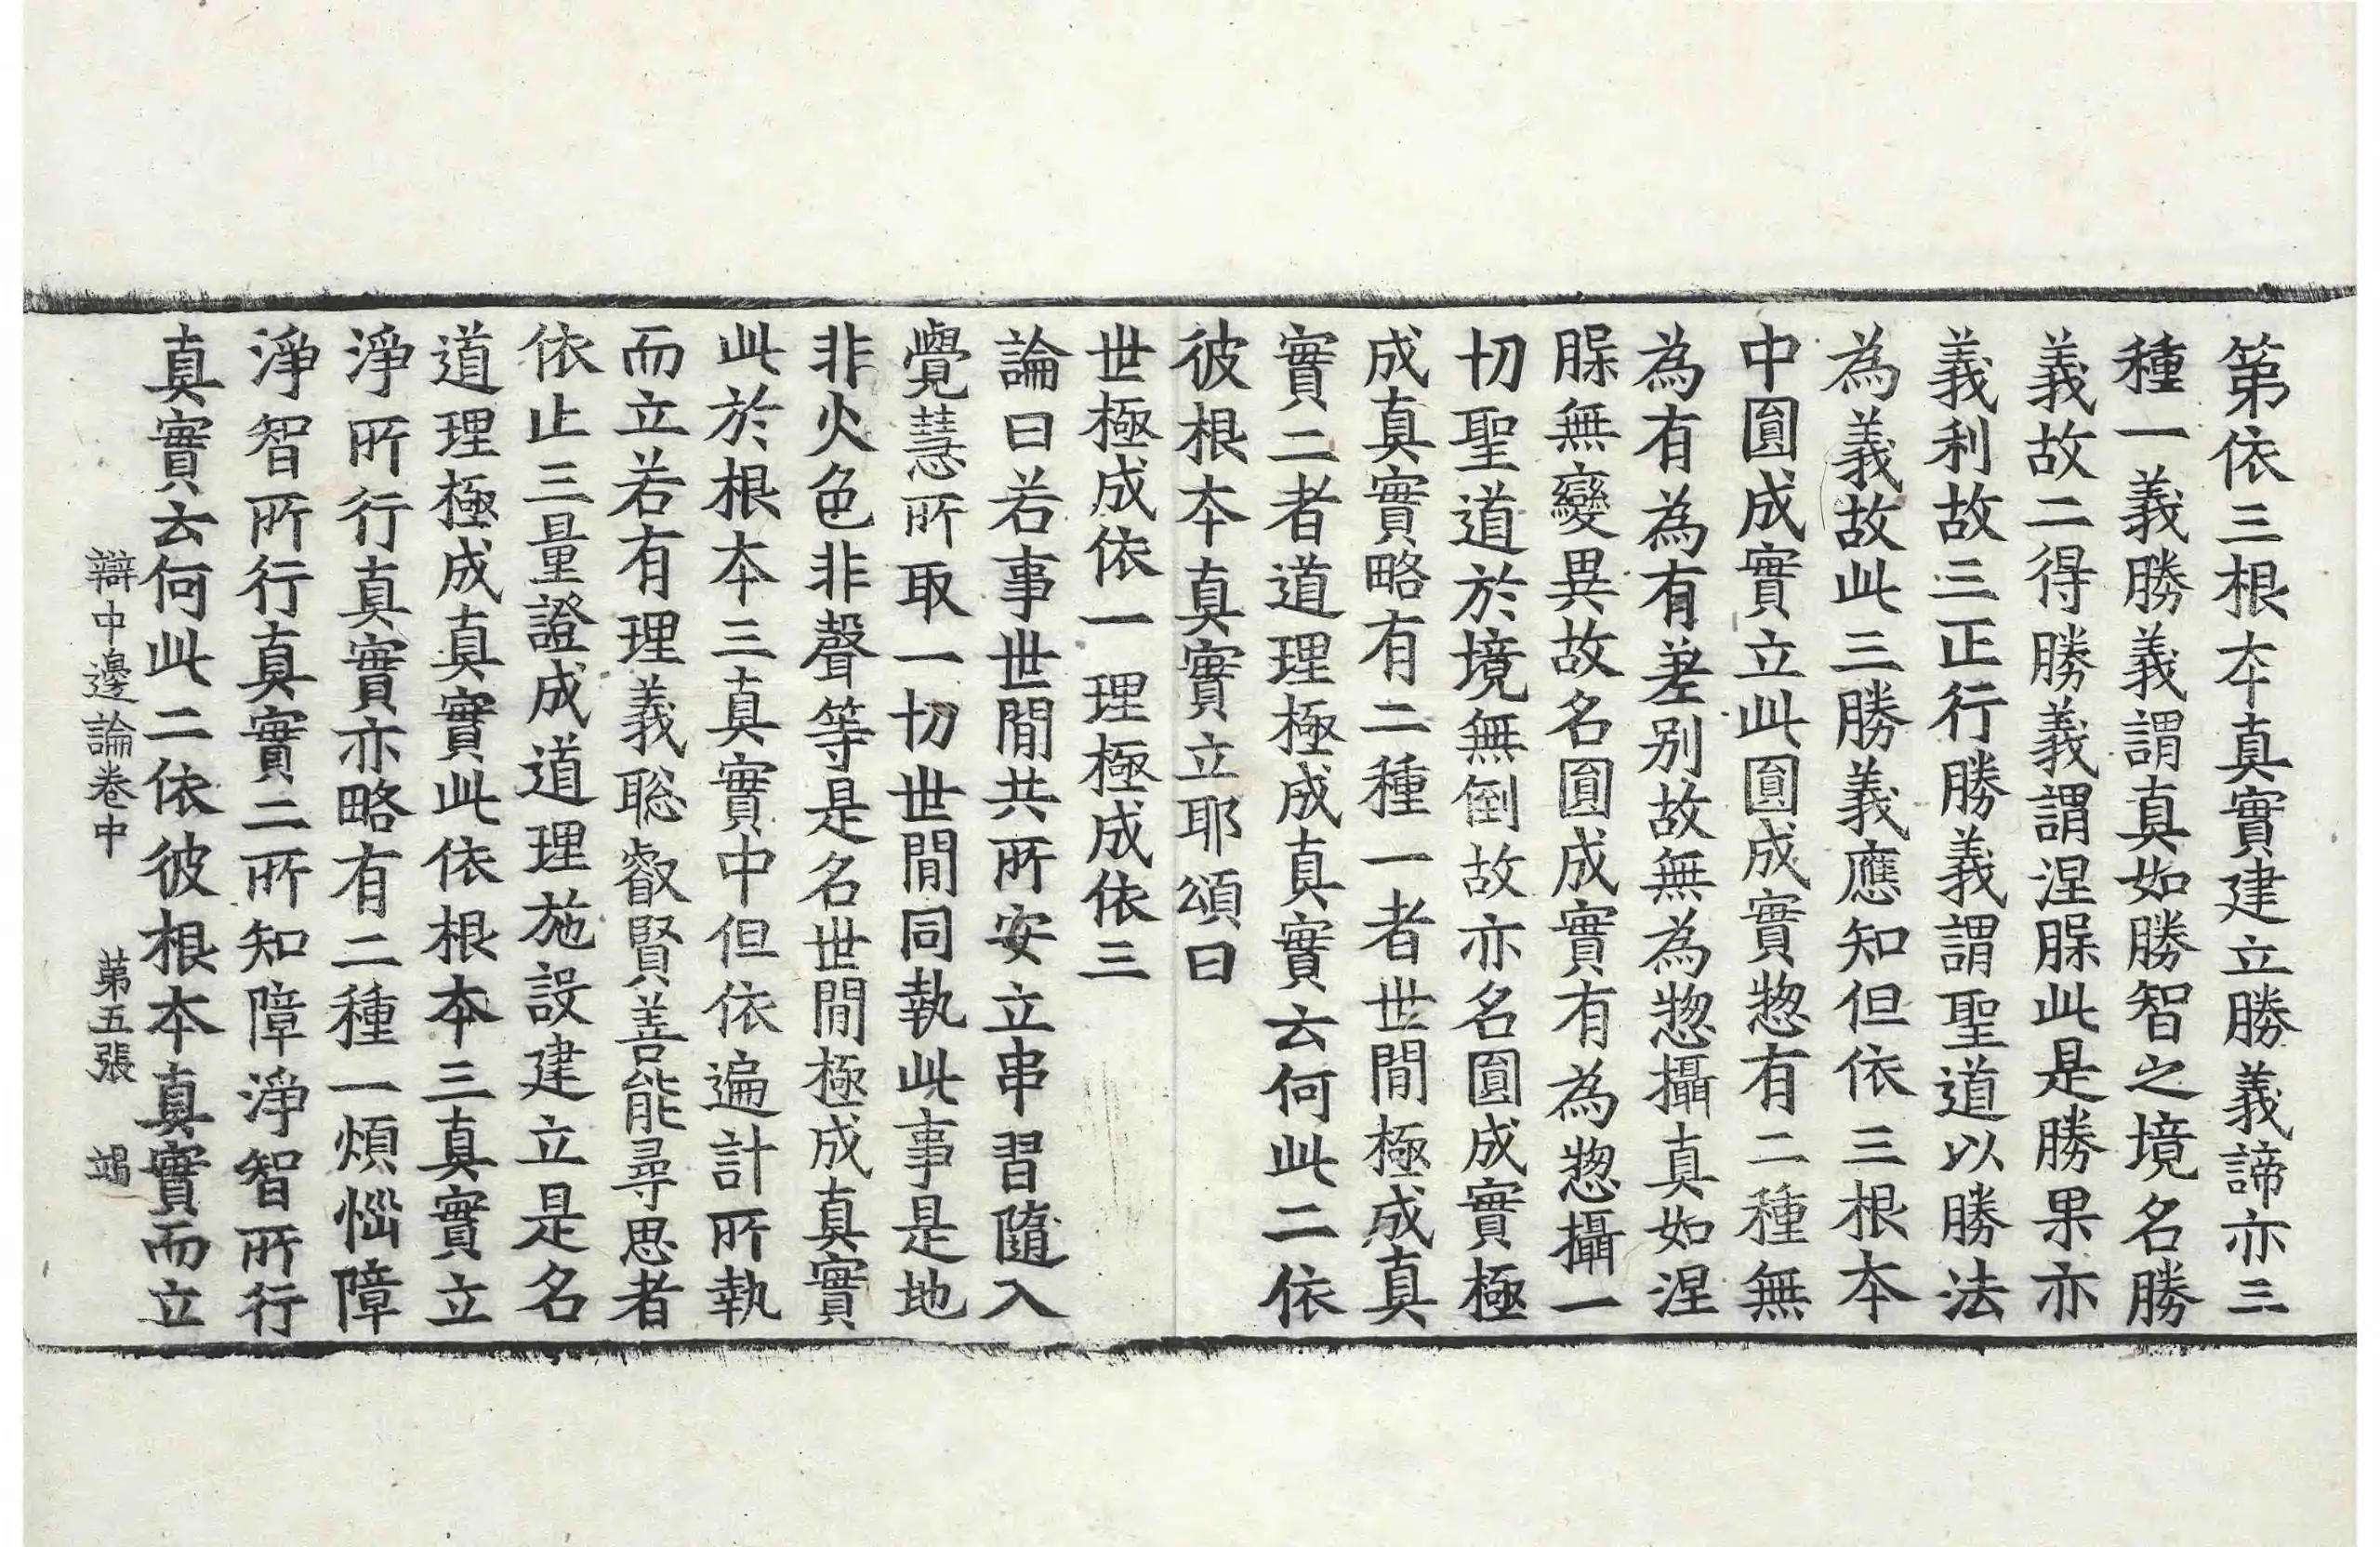 第依三根本真實建立勝義諦亦三
種一義勝義謂真如勝智之境名勝
義故二得勝義謂涅腺此是勝果亦
義利故三正行勝義謂聖道以勝法
為義故此三勝義應知但依三根本
中圓成實立此圓成實惣有二種無
為有為有差别故無為惣攝真如涅
腺無變異故名圓成實有為惣攝一
切聖道於境無倒故亦名圓成實極
成真實略有二種一者世閒極成真
實二者道理極成真實云何此二依
彼根本真實立耶頌曰
世極成依一理極成依三
論曰若事世閒共所安立串習隨入
覺慧所取一切世閒同執此事是地
非火色非聲等是名世閒極成真實
此於根本三真實中但依遍計所執
而立若有理義聡叡賢善能尋思者
依止三量證成道理施設建立是名
道理極成真實此依根本三真實立
淨所行真實亦略有二種一煩惱障
淨智所行真實二所知障淨智所行
真實云何此二依彼根本真實而立
辯中邊論卷中 第五張